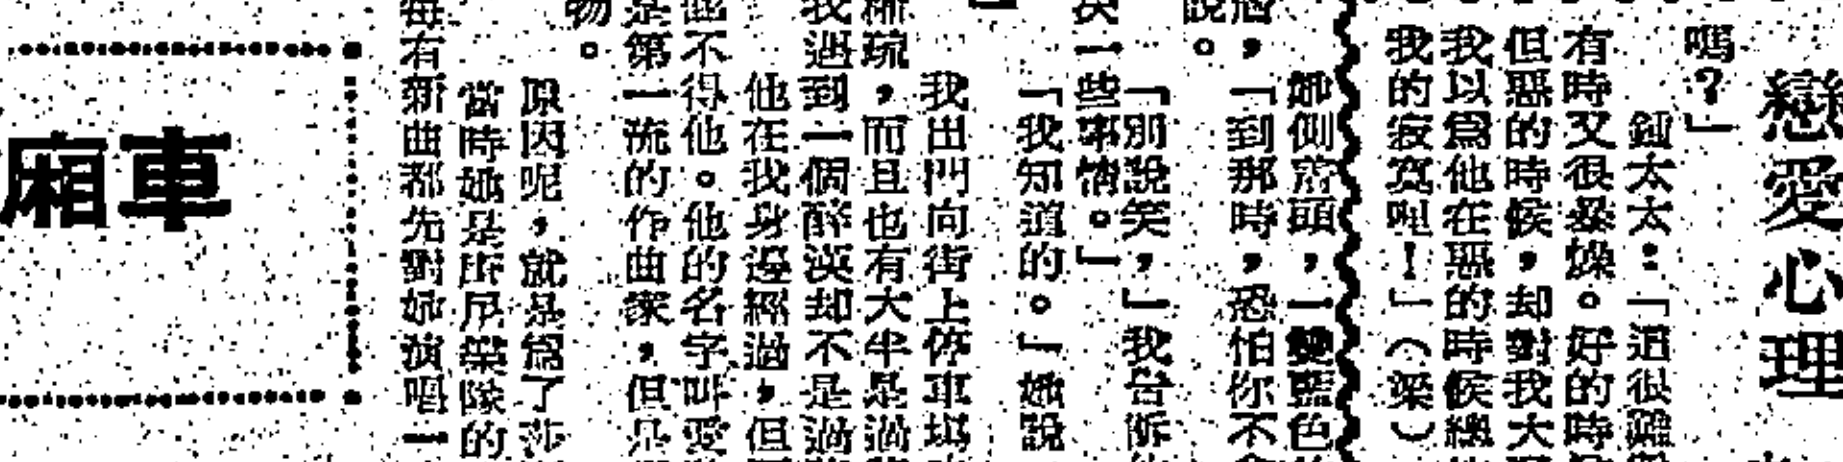 戀愛心理
嗎？」
鈕太太：「這很難
有時又很暴燥。好的時
但惡的時候，却對我大
我以爲他在惡的時候總
我的寂寞呢！」（梁）
她側着頭，一雙藍色
，「到那時，恐怕你不
說。
「別說笑，」我告訴
決一些事情。」
「我知道的。」她說
我出門向街上停車場
疏，而且也有大半是過
我遇到一個醉漢却不是過
他在我身邊經過，但
他不得他。他的名字叫愛
是第一流的作曲家，但是
物。
原因呢，就是爲了莎
當時她是所屬樂隊的
每有新曲都先對她演唱一
車廂